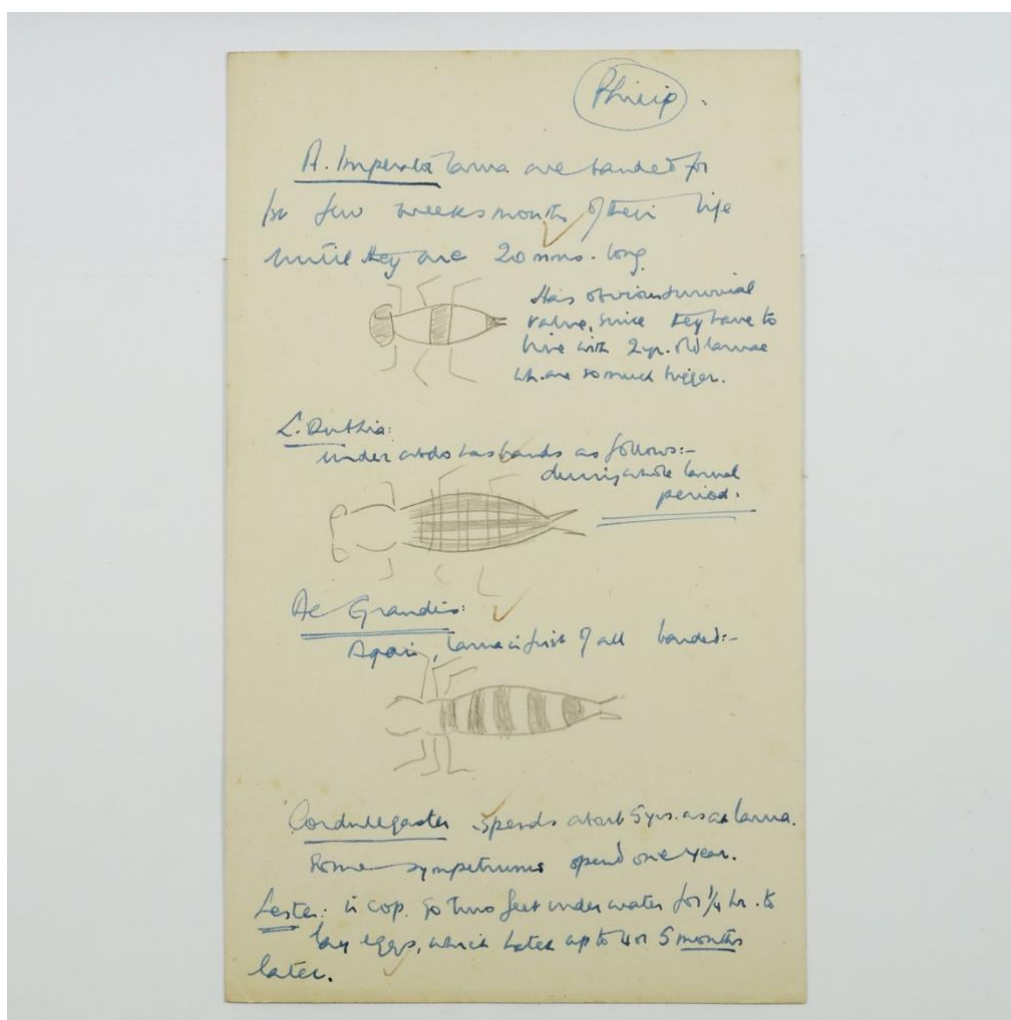 Philip.
A. Imperator larva are banded for
1st few weeks months of their life
until they are 20 mms. long.
Has obvious survival
value, since they have to
live with 2 yr. old larvae
wh. are so much bigger.
L. Dubhia:
under abdo has bands as follows:-
during whole larval
period.
Ae Grandis:
Again, larva is first of all banded:-
Cordulegaster spends about 5 yrs. as a larva.
Some sympetrums spend one year.
Lestes: in cop. go two feet under water for 1/4 hr. to
lay eggs, which hatch up to 4 or 5 months
later.